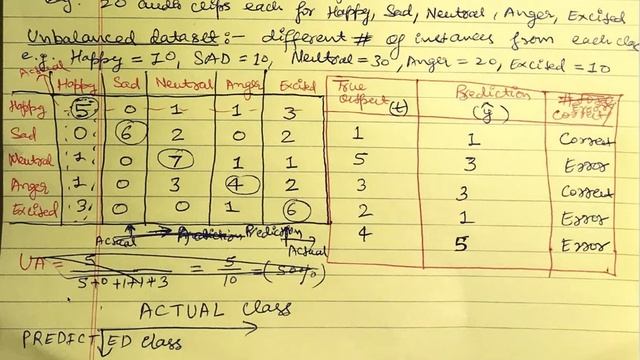 20 audio clips each for Happy, Sad, Neutral, Anger, Excised
Unbalanced dataset:- different # of instances from each
e.g. Happy = 10, SAD = 10, Neutral = 30, Anger = 20, Excised = 10
Actual
Happy Sad Neutral Anger Excised
Happy 5 0 1 1 3
Sad 0 6 2 0 2
Neutral 1 0 7 1 1
Anger 1 0 3 4 2
Excised 3 0 0 1 6
True output (t) Prediction (ŷ) correct
1 1 Correct
5 3 Error
3 3 Correct
2 1 Error
4 5 Error
Actual Prediction
Actual
UA = 5 / 5+0+1+1+3 = 5/10 = (50%)
ACTUAL Class
PREDICTED Class